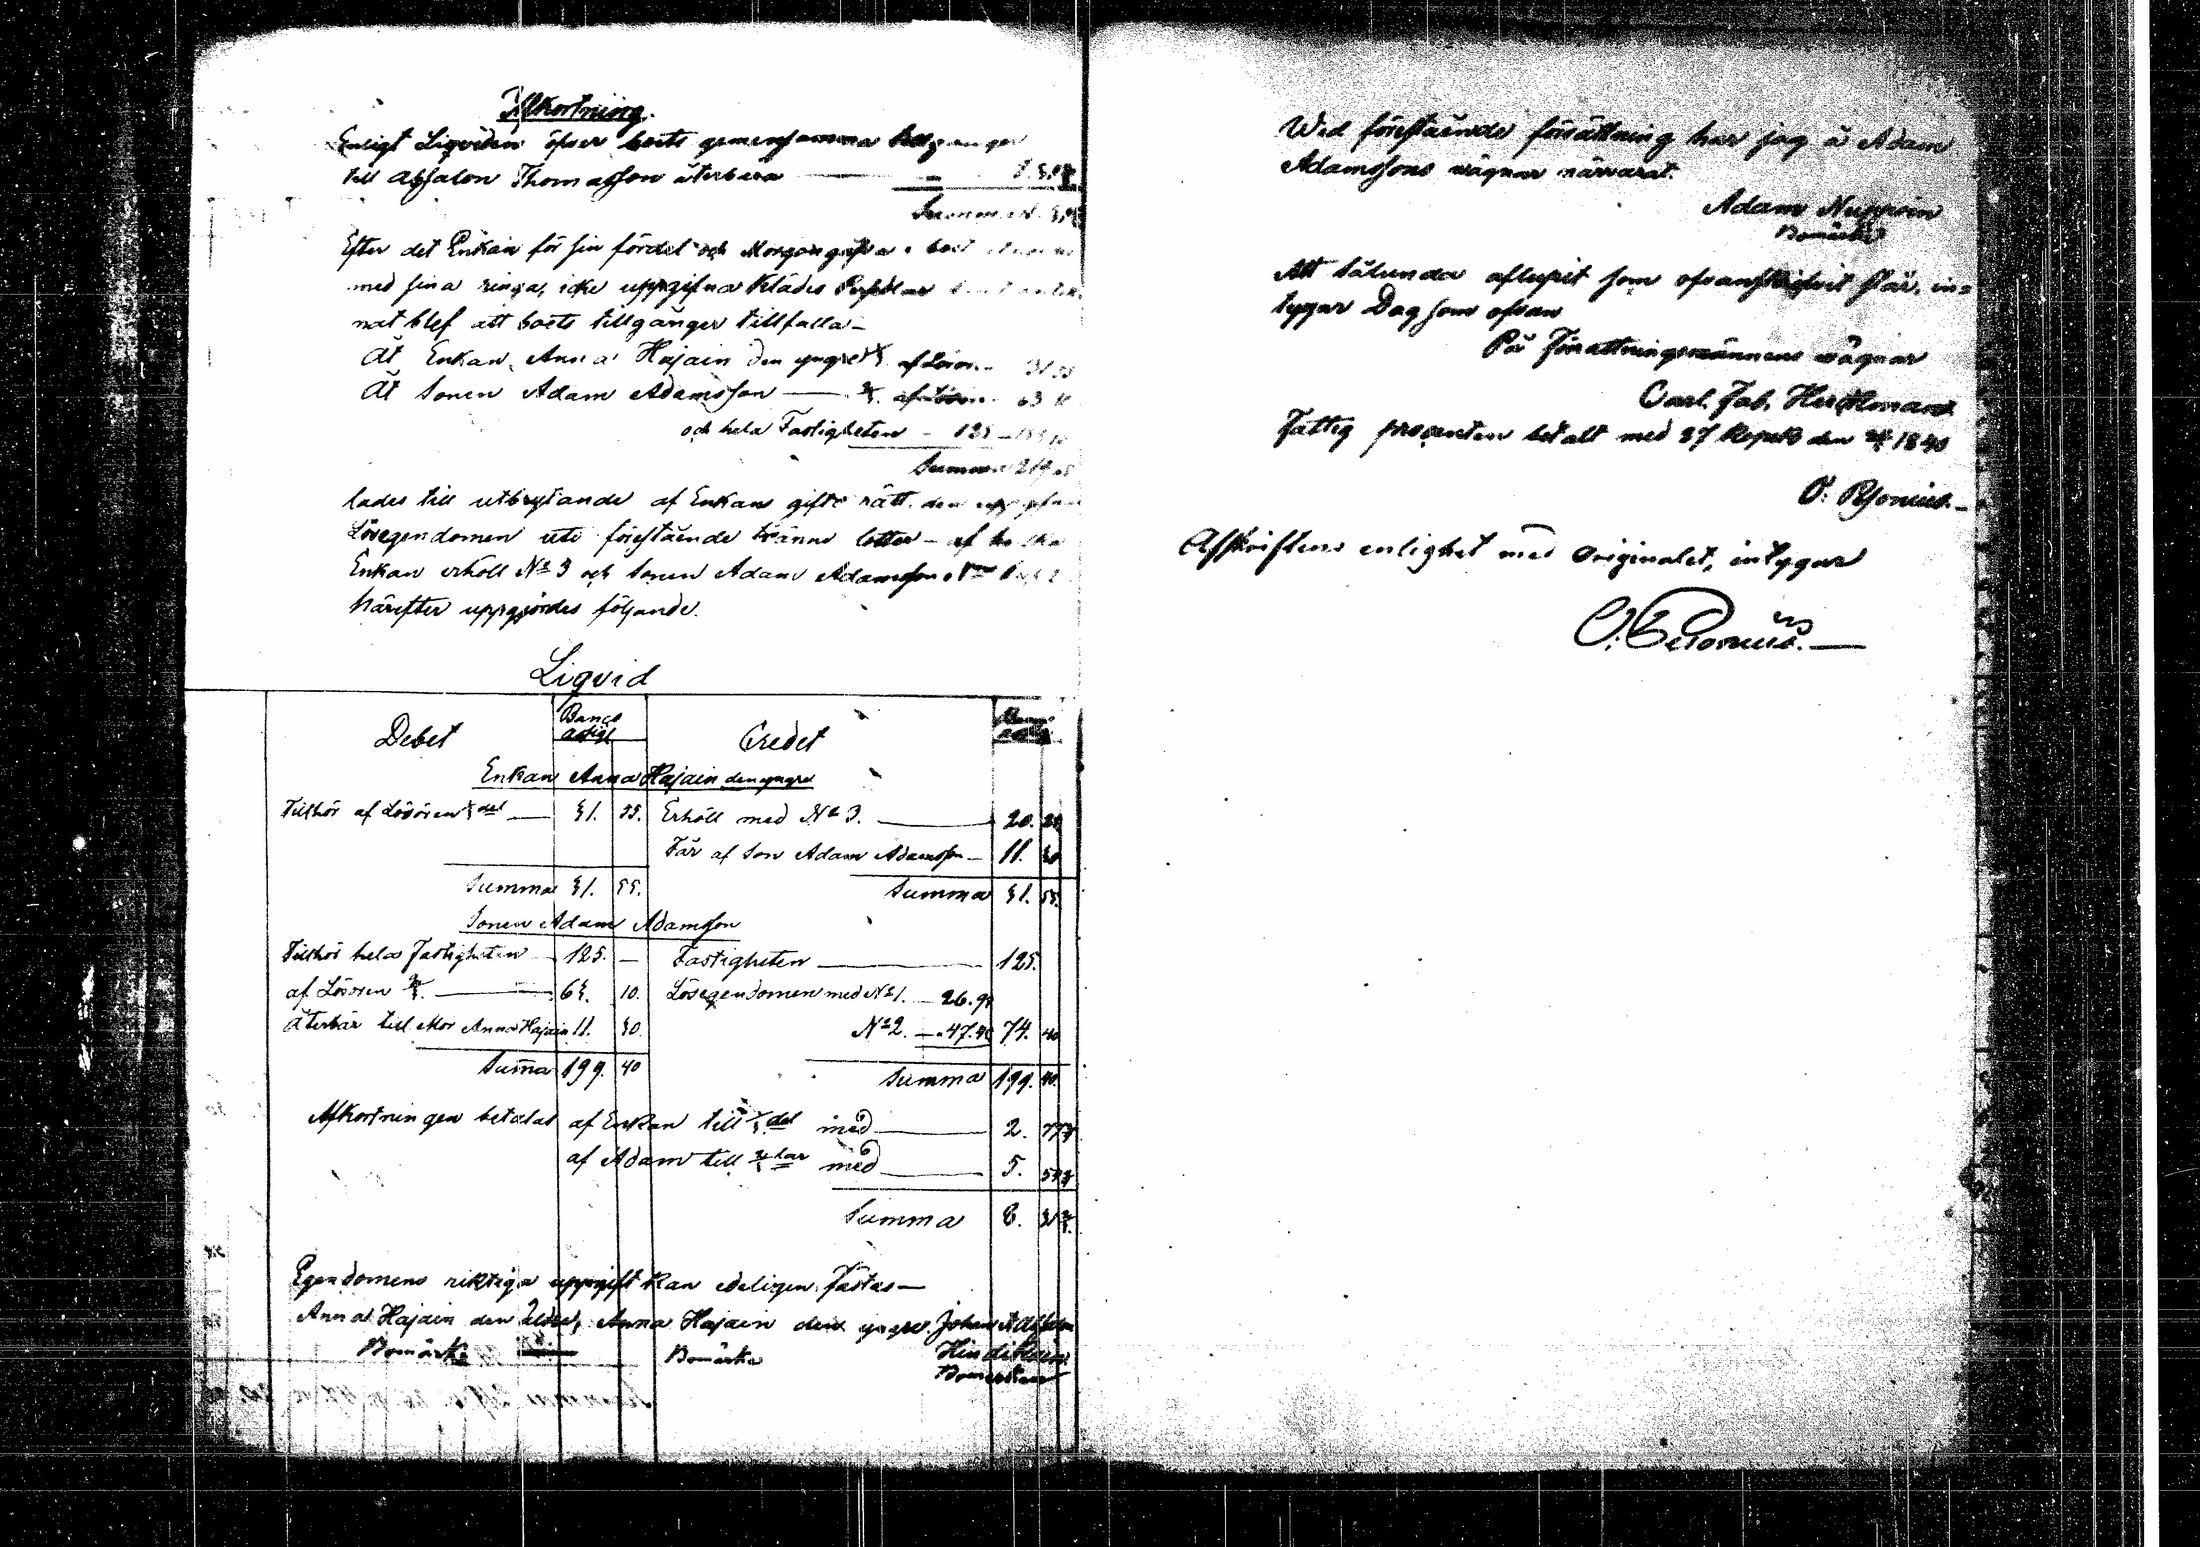 Afkortning.
Enligt Liqviden öfver boets gemensamma tillgångar
till Absalon Thomasson återbära
Summa
Efter det Enkan för sin fördel och Morgongåfva
med sina ringa, icke uppgifna Klädes Persedlar
nat blef att boets tillgånger tillfalla
Åt Enkan Anna Hajain den yngre 1/3 af Lösör. 31
Åt Sonen Adam Adamsson 2/3 af Lösör 63
och hela Fastigheten 125
Summa
lades till utbrytande af Enkans giftorätt den
Lösegendomen uti förestående tränne lotter af
Enkan erhöll No 3 och Sonen Adam Adamsson
härefter uppgjordes följande.
Liqvid
Debet Banco Credet
Enkan Anna Hajain den yngre
Tillhör af Lösören 1/3 del 31. 55. Erhöll med No 3. 20.
Får af Son Adam Adamsson 11. 30
Summa 31. 55. Summa 31. 55.
Sonen Adam Adamsson
Tillhör hela Fastigheten 125. — Fastigheten 125.
af Lösören 2/3. 63. 10. Lösegendomen med No 1. 26.92
Återbär till Mor Anna Hajain 11. 30. No 2. 47.48 74. 40
Summa 199. 40 Summa 199. 40.
Afkortningen betalas af Enkan till 1/3 del med 2.
af Adam till 2/3 lar med 5.
Summa 8.
Egendomens riktiga uppgift kan edeligen fästas
Anna Hajain den äldre, Anna Hajain den yngre Johan
Bomärke Bomärke
Wid förestående förrättning har jag å Adam
Adamssons wägnar närvarat.
Adam Nuppoin
Bomärke
Att sålunda aflupit som ofvanskrifvit står, in-
tygar Dag som ofvan
På Förrättningsmännens wägnar
Carl. Fab.
Fattig procenten betalt med 27 Kopek den 1840
Afskriftens enlighet med Originalet, intygar